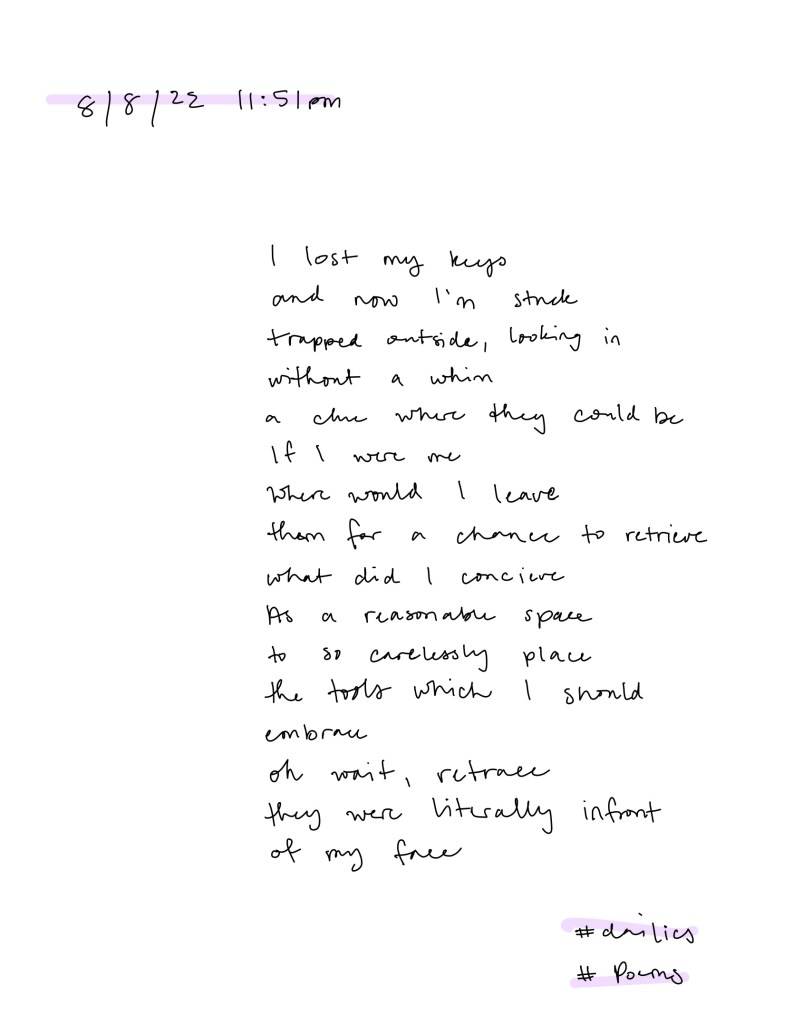 8/8/22 11:51pm
I lost my keys
and now I'm stuck
trapped outside, looking in
without a whim
a clue where they could be
If I were me
where would I leave
them for a chance to retrieve
what did I concieve
As a reasonable space
to so carelessly place
the tools which I should
embrace
oh wait, retrace
they were literally infront
of my face
#dailies
# Poems